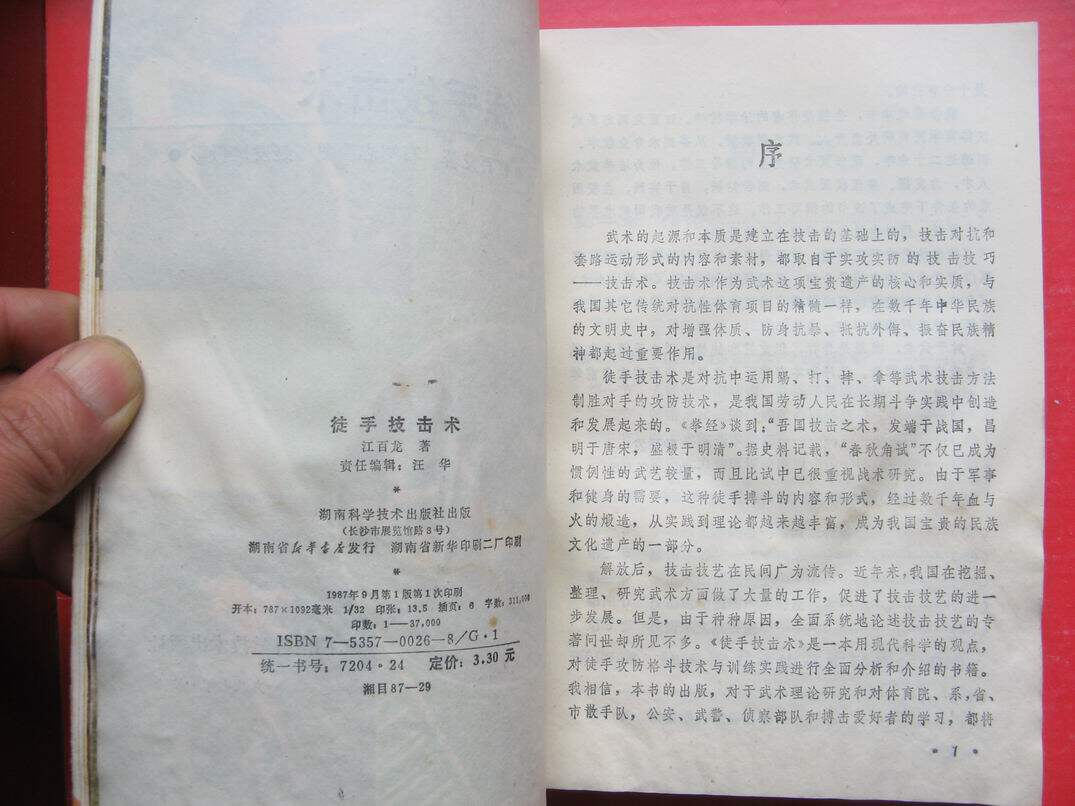 徒手技击术
江百龙 著
责任编辑：汪 华
*
湖南科学技术出版社出版
（长沙市展览馆路3号）
湖南省新华书店发行 湖南省新华印刷二厂印刷
*
1987年9月第1版第1次印刷
开本：787×1092毫米 1/32 印张：13.5 插页：6 字数：311,000
印数：1—37,000
ISBN 7—5357—0026—8/G·1
统一书号：7204·24 定价：3.30元
湘目87—29
序
武术的起源和本质是建立在技击的基础上的，技击对抗和
套路运动形式的内容和素材，都取自于实攻实防的技击技巧
——技击术。技击术作为武术这项宝贵遗产的核心和实质，与
我国其它传统对抗性体育项目的精髓一样，在数千年中华民族
的文明史中，对增强体质、防身抗暴、抵抗外侮、振奋民族精
神都起过重要作用。
徒手技击术是对抗中运用踢、打、摔、拿等武术技击方法
制胜对手的攻防技术，是我国劳动人民在长期斗争实践中创造
和发展起来的。《拳经》谈到：“吾国技击之术，发端于战国，昌
明于唐宋，盛极于明清”。据史料记载，“春秋角试”不仅已成为
惯例性的武艺较量，而且比试中已很重视战术研究。由于军事
和健身的需要，这种徒手搏斗的内容和形式，经过数千年血与
火的煅造，从实践到理论都越来越丰富，成为我国宝贵的民族
文化遗产的一部分。
解放后，技击技艺在民间广为流传。近年来，我国在挖掘、
整理、研究武术方面做了大量的工作，促进了技击技艺的进一
步发展。但是，由于种种原因，全面系统地论述技击技艺的专
著问世却所见不多。《徒手技击术》是一本用现代科学的观点，
对徒手攻防格斗技术与训练实践进行全面分析和介绍的书籍。
我相信，本书的出版，对于武术理论研究和对体育院、系，省、
市散手队，公安、武警、侦察部队和搏击爱好者的学习，都将
• 1 •